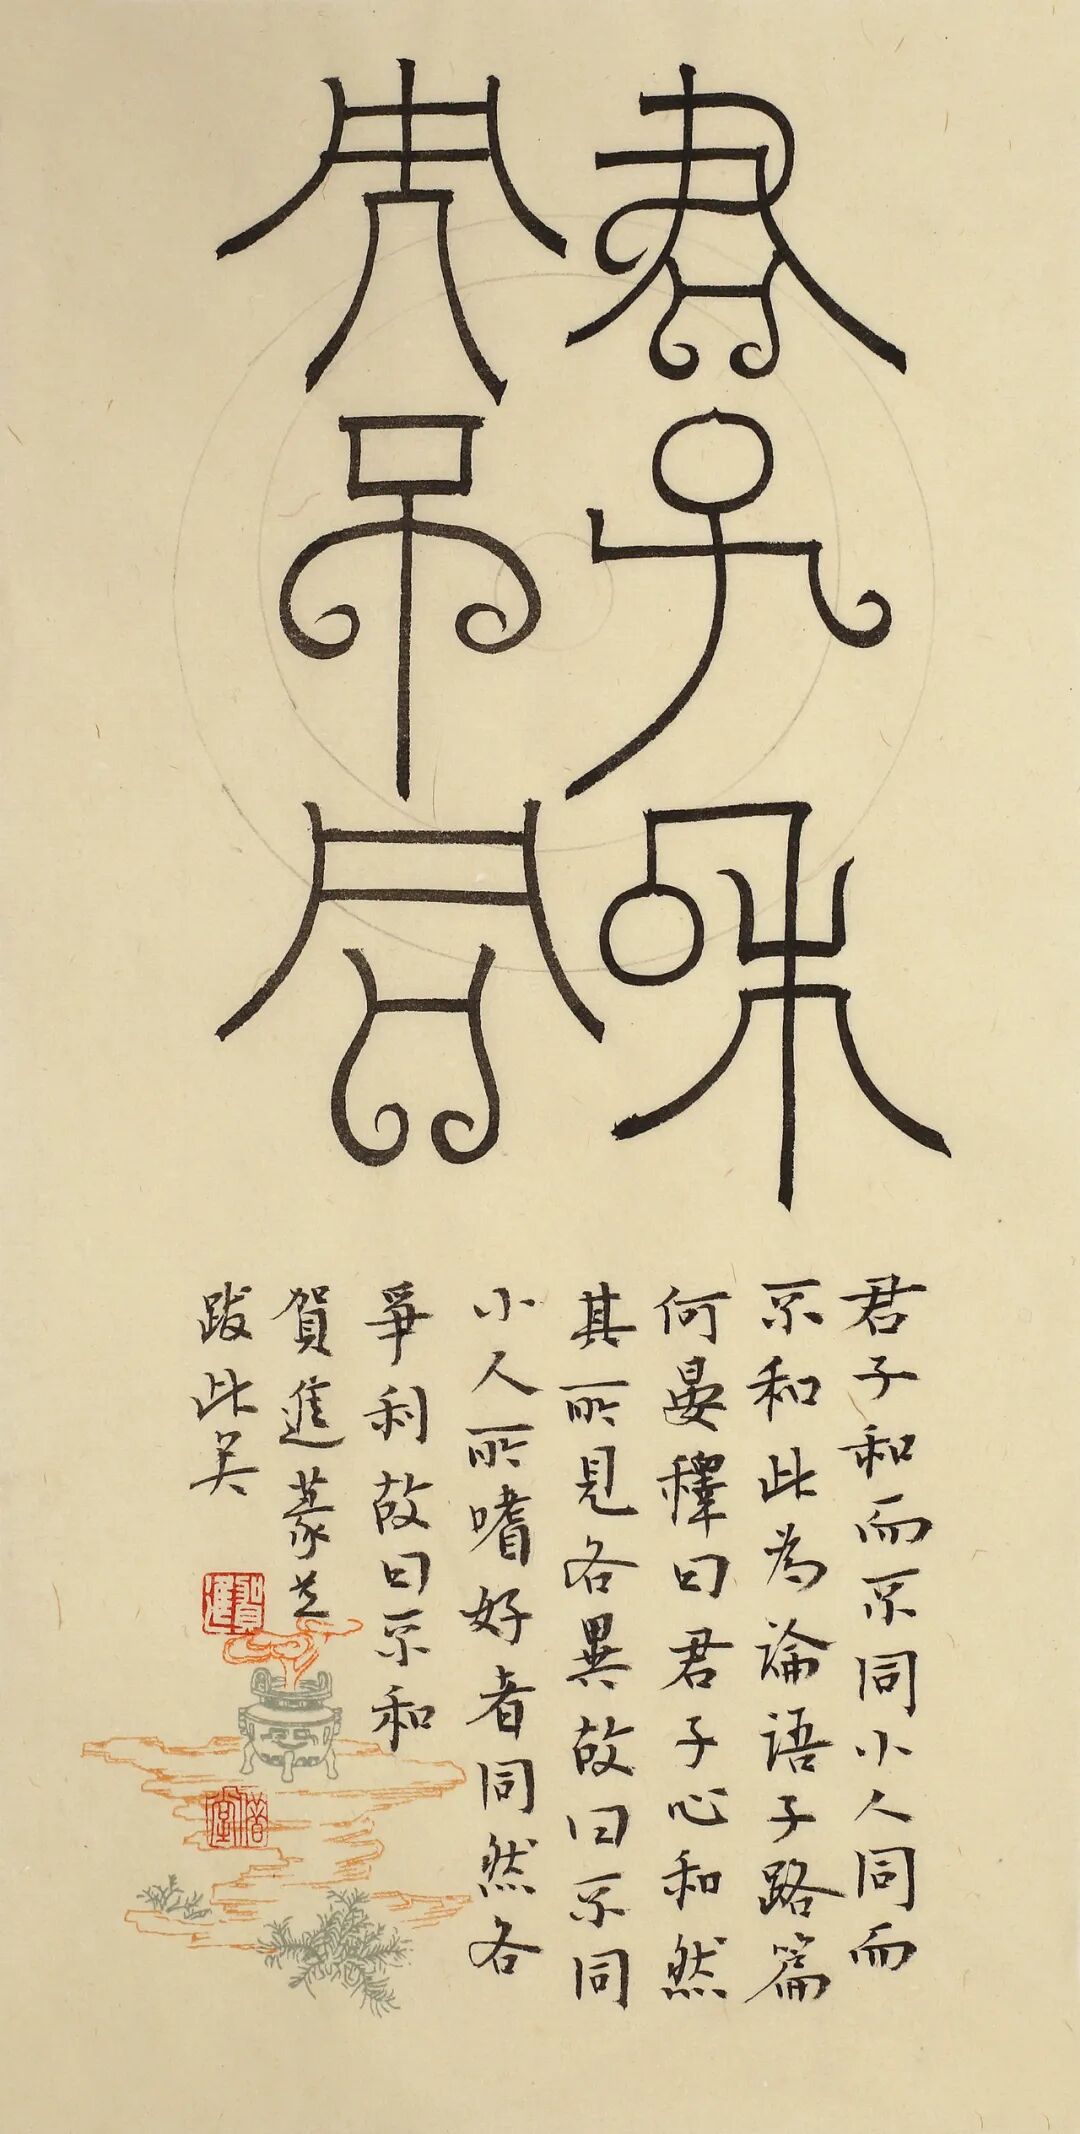 君子和
而不同
君子和而不同小人同而
不和此為論語子路篇
何晏釋曰君子心和然
其所見各異故曰不同
小人所嗜好者同然各
爭利故曰不和
賀進篆並
跋此
賀進